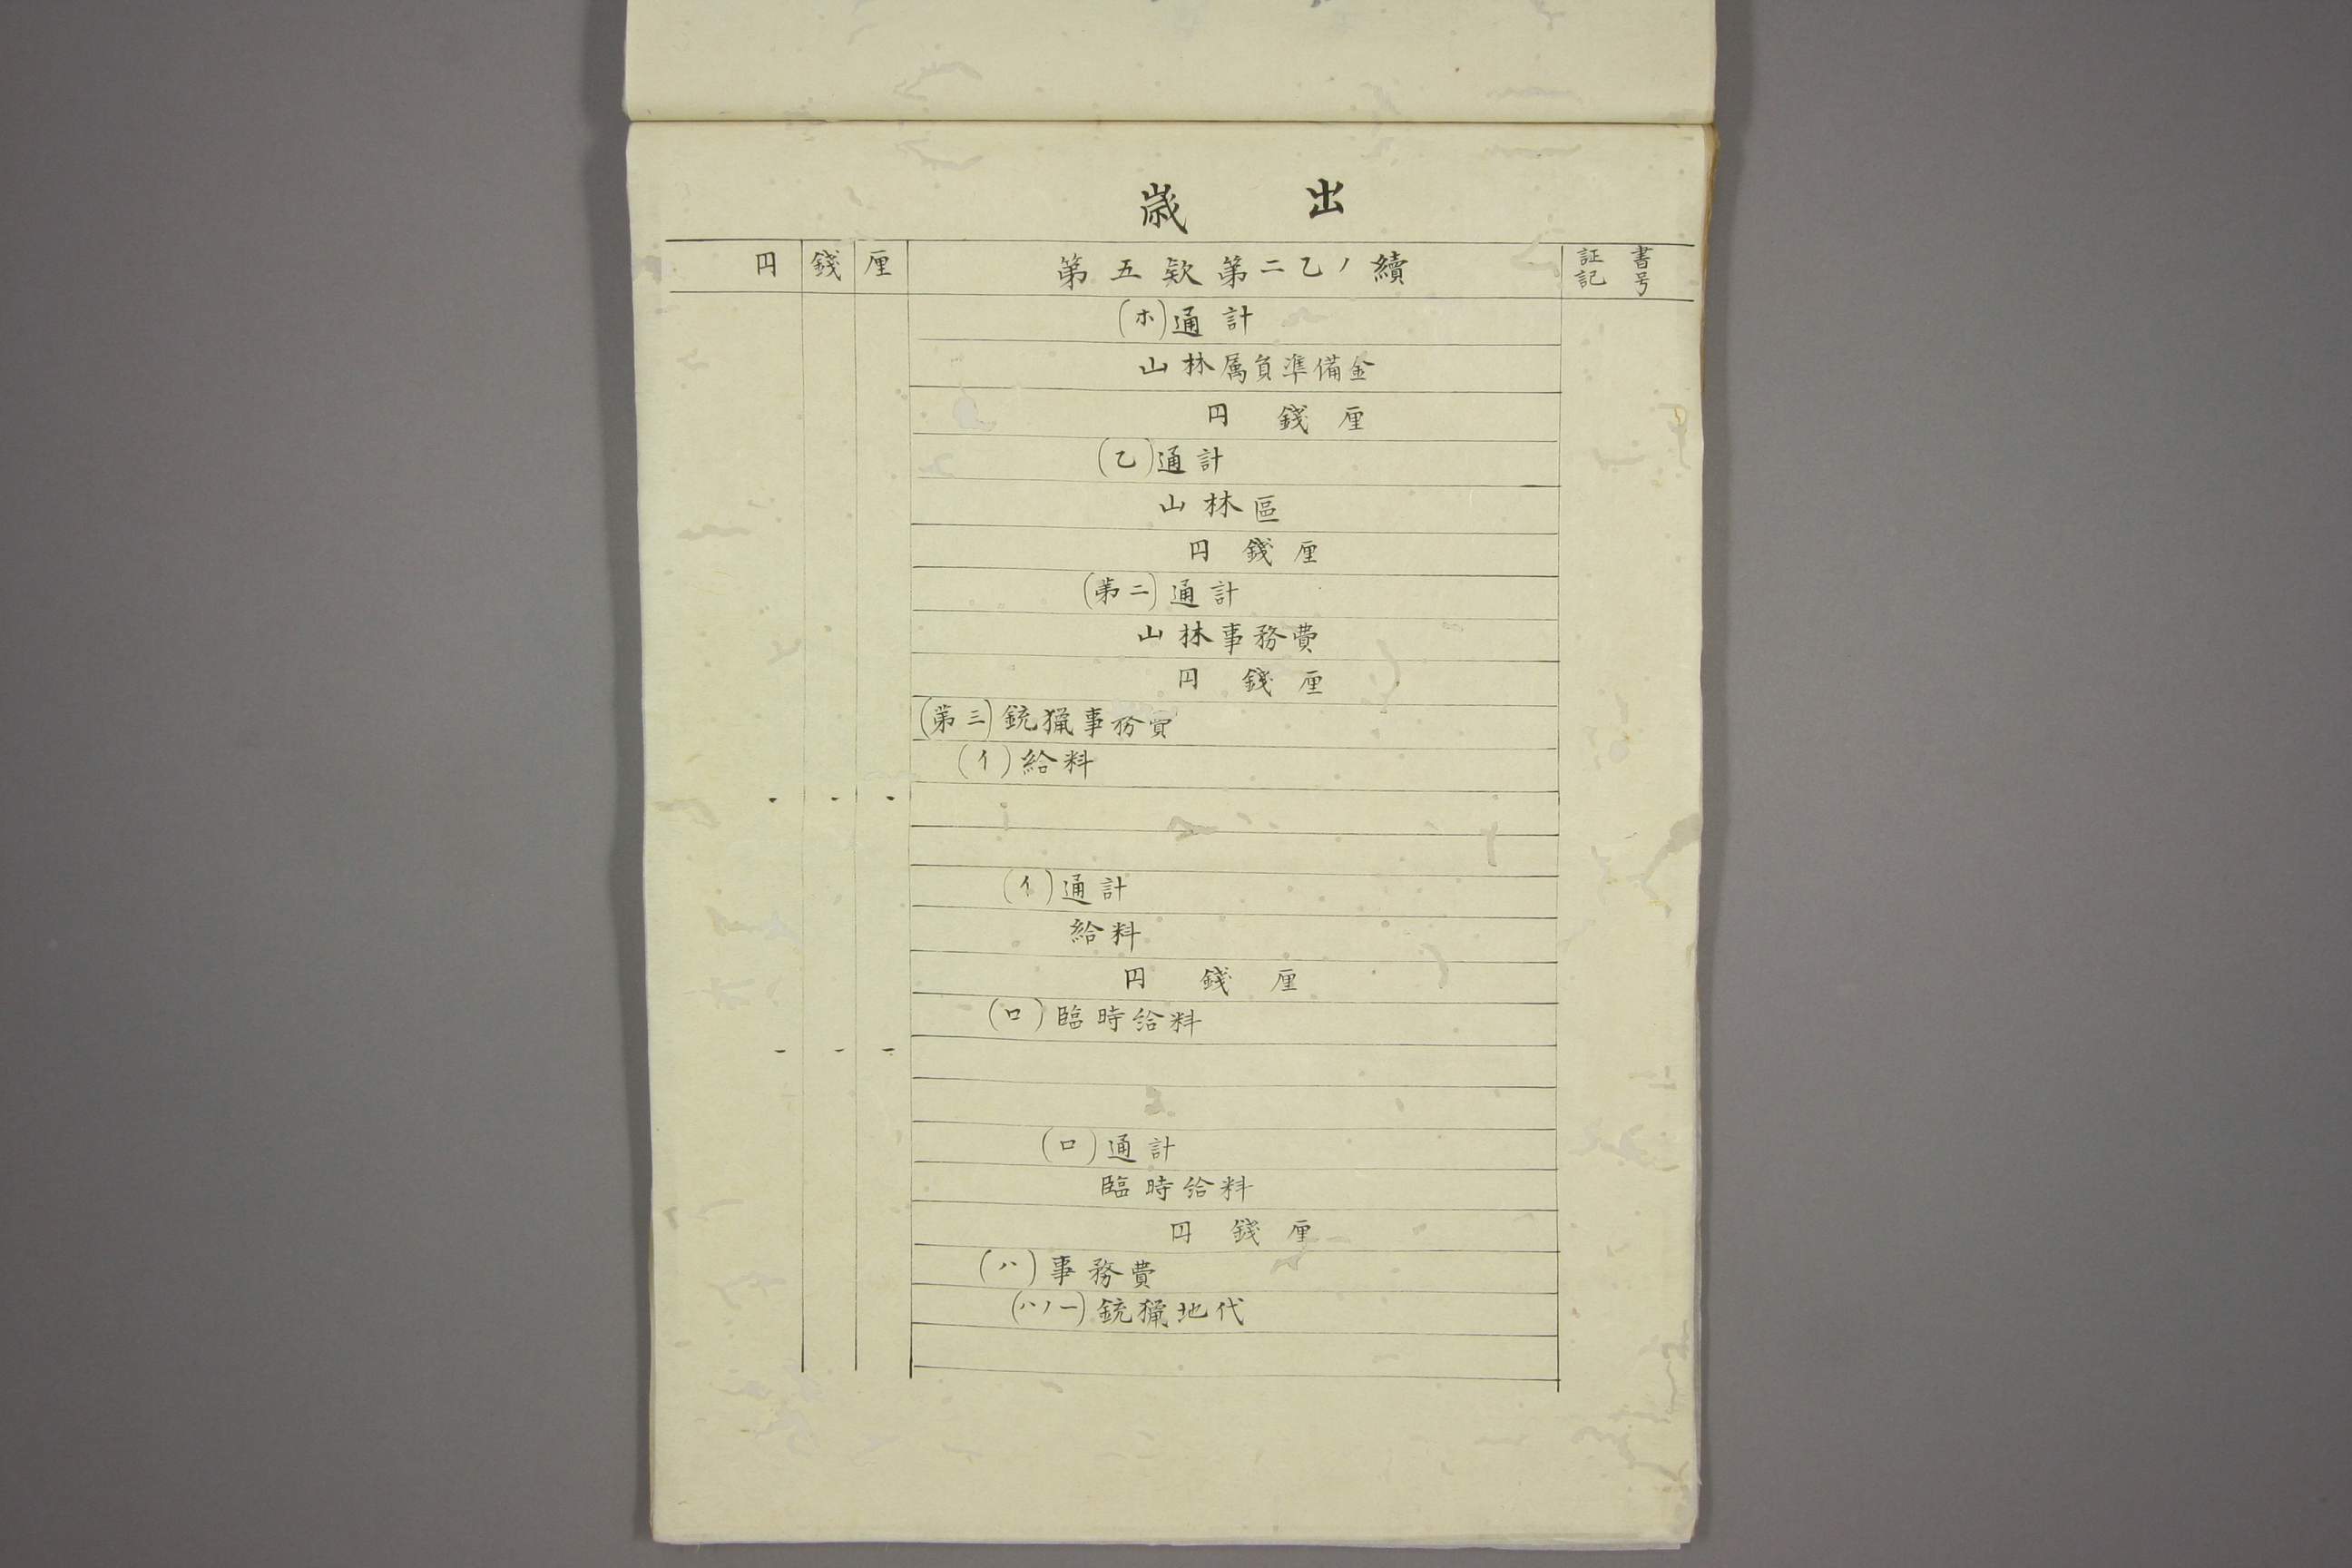 歳出
円 錢 厘 第五欵第二乙ノ續 証書
記号
(ホ)通計
山林属負準備金
円 錢 厘
(乙)通計
山林區
円 錢 厘
(第二)通計
山林事務費
円 錢 厘
(第三)銃獵事務費
(イ)給料
- - -
(イ)通計
給料
円 錢 厘
(ロ)臨時給料
- - -
(ロ)通計
臨時給料
円 錢 厘
(ハ)事務費
(ハノ一)銃獵地代